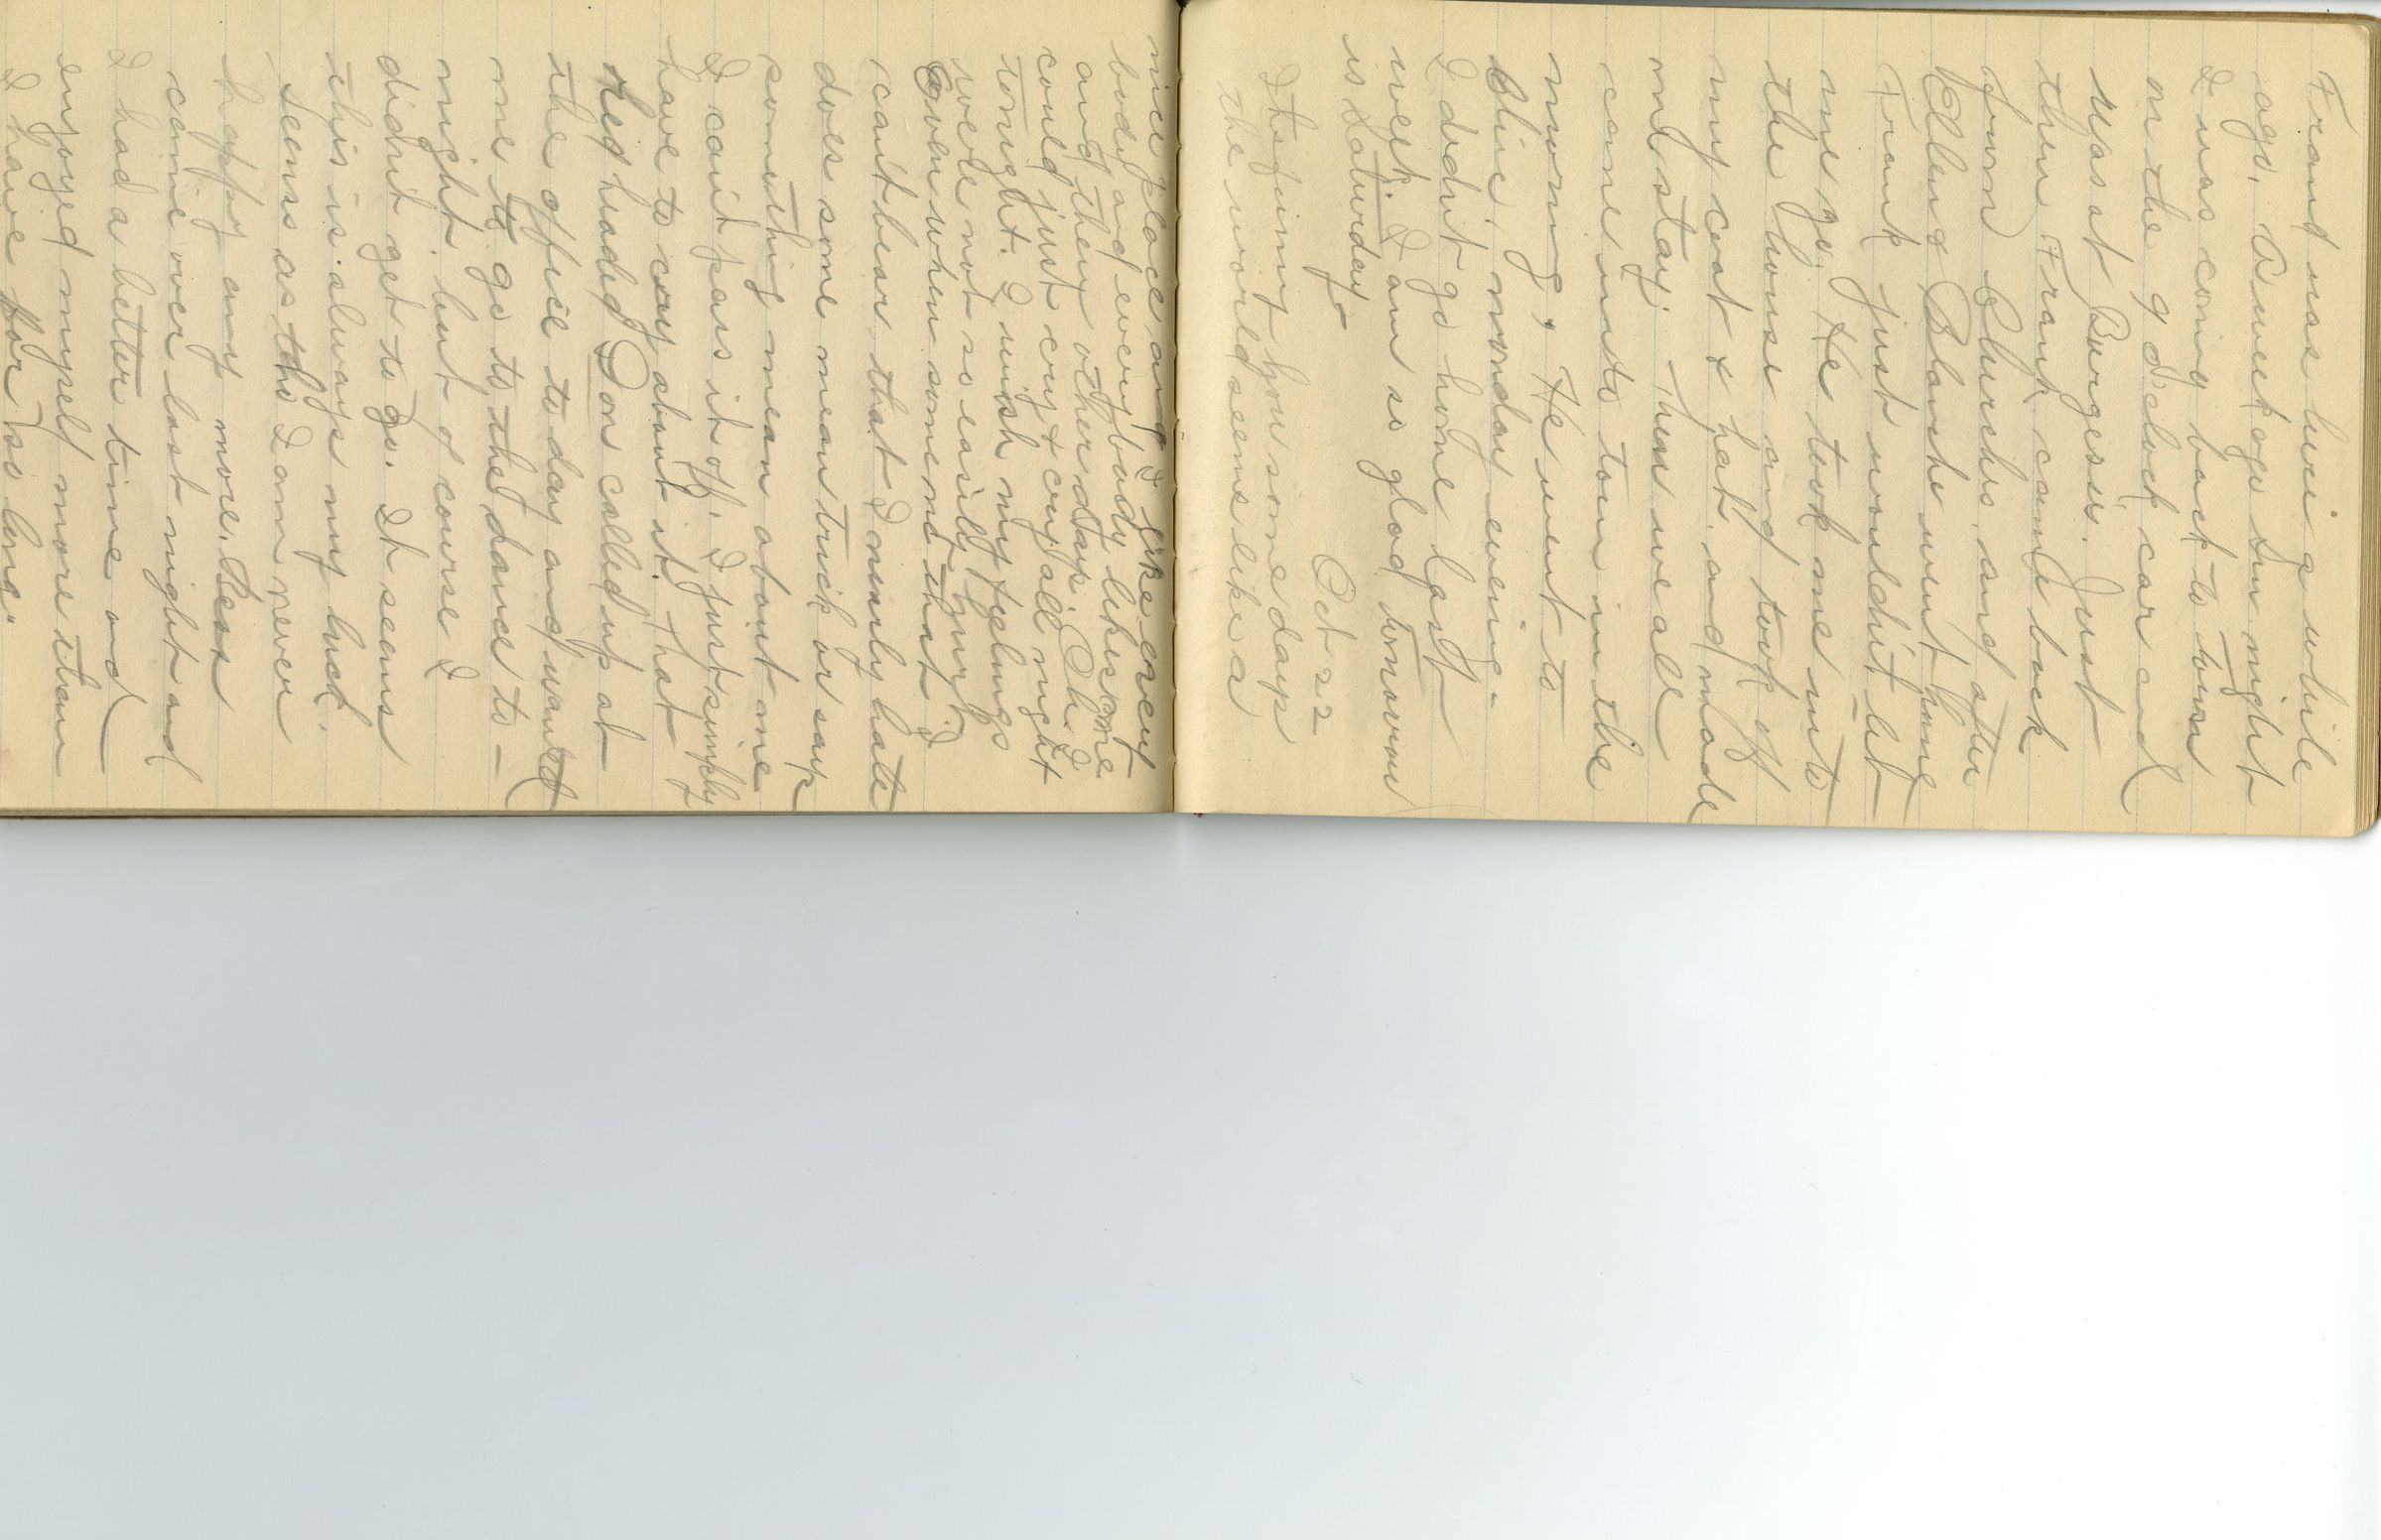 Frank was here a while
ago. A week ago Sun night
I was coming back to town
on the 9 o'clock car and
was at Burgesses. Just
then Frank came back
from Church, and after
Ellen & Blanche went home
Frank just wouldn't let
me go. He took me into
the house and took off
my coat & hat, and made
me stay. Then we all
came into town in the
morning. He went to
Olive, monday evening.
I didn't go home last
week. I am so glad tomorrow
is Saturday
Oct 22
Its funny how some days
the world seems like a
nice place and I like every
body and everybody likes me
and then other days. Oh I
could just cry & cry all night
tonight. I wish my feelings
were not so easily hurt
Even when someone that I
can't bear that I nearly hate
does some mean trick or says
something mean about me
I can't pass it off, I just simply
have to cry about it. That
red headed Don called up at
the office to day and wanted
me to go to the dance to-
night. but of course I
didn't get to go. It seems
this is always my luck.
Seems as tho I am never
happy any more. Bess
came over last night and
I had a better time and
enjoyed myself more than
I have for so long.